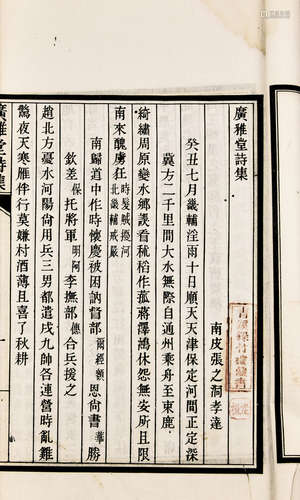 廣雅堂詩集
南皮張之洞孝達
癸丑七月畿輔淫雨十日順天天津保定河間正定深
冀方二千里間大水無際自通州乘舟至東鹿
綺繡周原變水鄉誤看秔稻作菰蔣澤鴻休怨無安所且限
南來醜虜狂時髮賊擾河北畿輔戒嚴
南歸道中作時懷慶被困訥督部爾經額恩尙書華勝
欽差保托將軍明阿李撫部僡合兵援之
趙北方憂水河陽尙用兵三男都遣戌九帥各連營時亂雞
驚夜天寒雁伴行莫嫌村酒薄且喜了秋耕
廣雅堂詩集
一